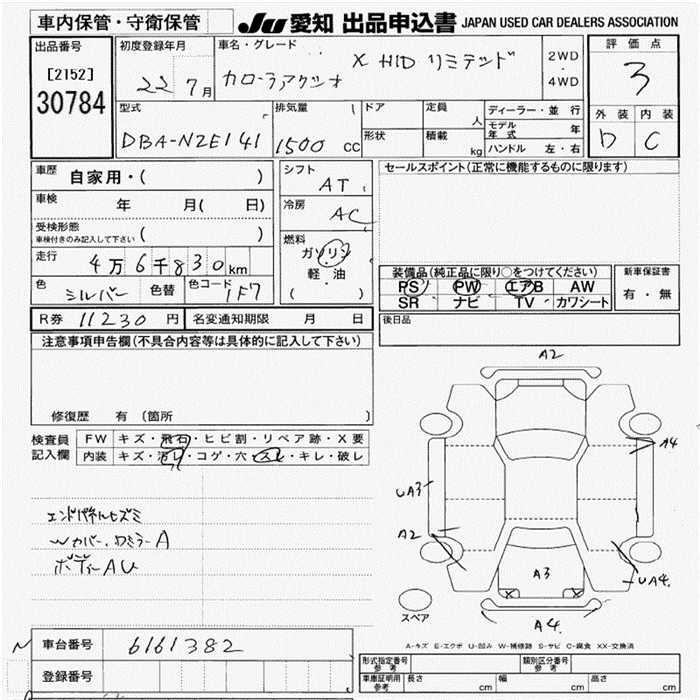 車内保管・守衛保管
JU 愛知 出品申込書 JAPAN USED CAR DEALERS ASSOCIATION
出品番号
[2152]
30784
初度登録年月
22 7月
車名・グレード
X HID リミテッド
カローラアクシオ
2WD
・
4WD
評価点
3
外装 内装
D C
型式
DBA-NZE141
排気量
1500 cc
ドア
定員
人
形状
積載
kg
ディーラー・並行
モデル年式 年
ハンドル 左・右
車歴 自家用・( )
車検 年 月( 日)
受検形態
車検付きのみ記入して下さい ( )
走行 4万6千830km
色 シルバー 色替 色コード 1F7
シフト
AT
冷房
AC
燃料
ガソリン
軽・油
( )
セールスポイント(正常に機能するものに限ります)
装備品(純正品に限り○をつけてください)
PS PW エアB AW
SR ナビ TV カワシート
新車保証書
有・無
R券 11230 円 名変通知期限 月 日
後日品
注意事項申告欄(不具合内容等は具体的に記入して下さい)
修復歴 有(箇所 )
検査員記入欄
FW キズ・飛石・ヒビ割・リペア跡・X要
内装 キズ・汚レ・コゲ・穴・スレ・キレ・破レ
エンドパネルヒズミ
Wカバー.Wミラー A
ボディーAU
A2
A4
UA3
A2
A3
UA4
A4
X X
スペア
A-キズ E-エクボ U-凹み W-補修跡 S-サビ C-腐食 XX-交換済
N
車台番号 6161382
登録番号
形式指定番号 参考
類別区分番号 参考
車庫証明用 参考 長さ cm 幅 cm 高さ cm